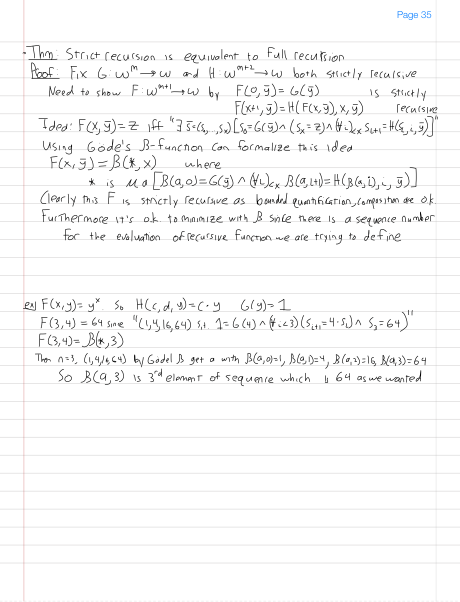 Page 35
- Thm: Strict recursion is equivalent to Full recursion
Proof: Fix G: ω^m → ω and H: ω^{m+2} → ω both strictly recursive
Need to show F: ω^{m+1} → ω by F(0, ȳ) = G(ȳ) is strictly
F(x+1, ȳ) = H(F(x, ȳ), x, ȳ) recursive
Idea: F(x, ȳ) = z iff "∃ s̄ = (s₀ … sₓ) [s₀ = G(ȳ) ∧ (sₓ = z) ∧ (∀i)_{<x} s_{i+1} = H(s_i, i, ȳ)]"
Using Gödel's β-function can formalize this idea
F(x, ȳ) = β(*, x) where
* is μa [β(a,0) = G(ȳ) ∧ (∀i)_{<x} β(a, i+1) = H(β(a, i), i, ȳ)]
Clearly this F is strictly recursive as bounded quantification, composition are o.k.
Furthermore it's o.k. to minimize with β since there is a sequence number
for the evaluation of recursive function we are trying to define
ex) F(x, y) = y^x. So H(c, d, y) = c · y G(y) = 1
F(3, 4) = 64 since "(1, 4, 16, 64) s.t. 1 = G(4) ∧ (∀i<3)(s_{i+1} = 4 · s_i) ∧ s₃ = 64)"
F(3, 4) = β(*, 3)
Then n = 3, (1, 4, 16, 64) by Gödel β get a with β(a, 0) = 1, β(a, 1) = 4, β(a, 2) = 16, β(a, 3) = 64
So β(a, 3) is 3^{rd} element of sequence which is 64 as we wanted